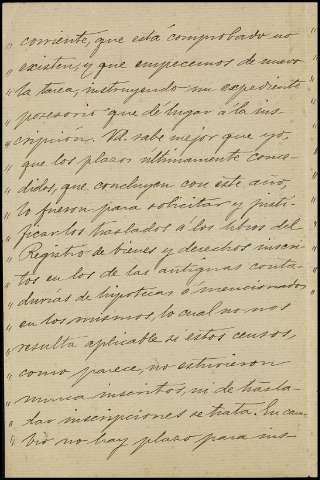 " corriente, que está comprobado no
" existen, y que empecemos de nuevo
" la tarea, instruyendo un expediente
" posesorio que dé lugar á la ins-
" cripción. Vd. sabe mejor que yo,
" que los plazos últimamente conce-
" didos, que concluyen con este año,
" lo fueron para solicitar y justi-
" ficar los traslados a los libros del
" Registro de bienes y derechos inscri-
" tos en los de las antiguas conta-
" durías de hipotecas o mencionados
" en los mismos, lo cual no nos
" resulta aplicable si estos censos,
" como parece, no estuvieron
" nunca inscritos, ni de trasla-
" dar inscripciones se trata. En cam-
" bio no hay plazo para ins-